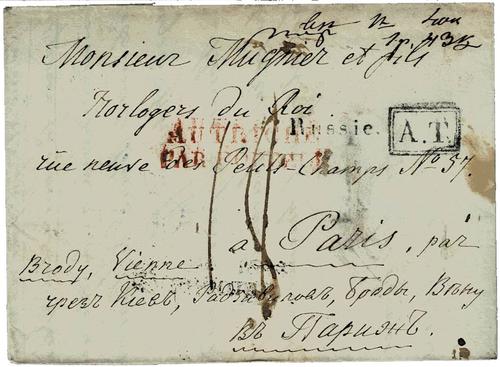 Monsieur Mugnier et fils
Horlogers du Roi
AUTRICHE
Russie.
A.T.
PAR
rue neuve des Petits Champs No 57.
à Paris, par
Brody, Vienne
чрезъ Кіевъ, Радзивиловъ, Броды, Вѣну
въ Парижъ.